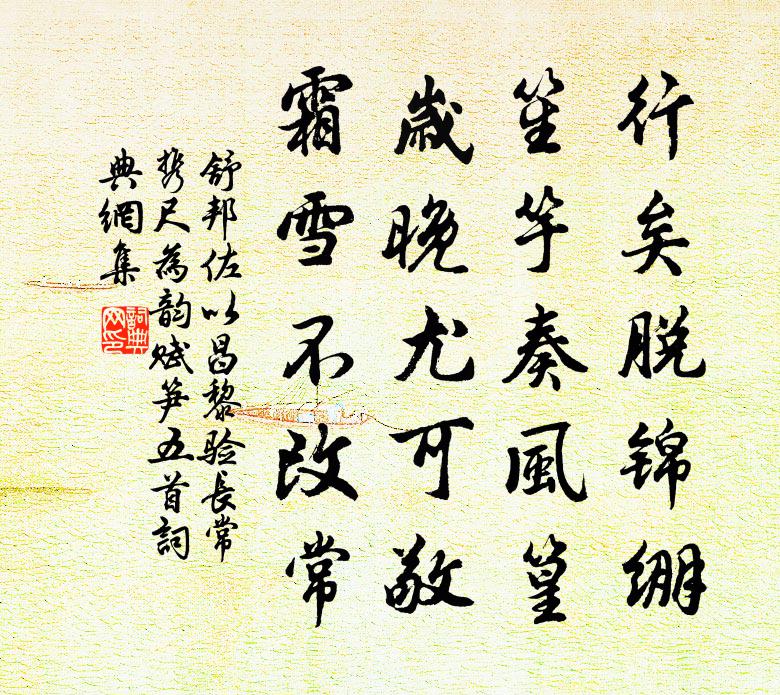 行矣脱锦绷
笙竽奏風篁
歲晚尤可敬
霜雪不改常
舒邦佐以昌黎验長常
携尺為韵赋笋五首詞
典網集
詞典网印